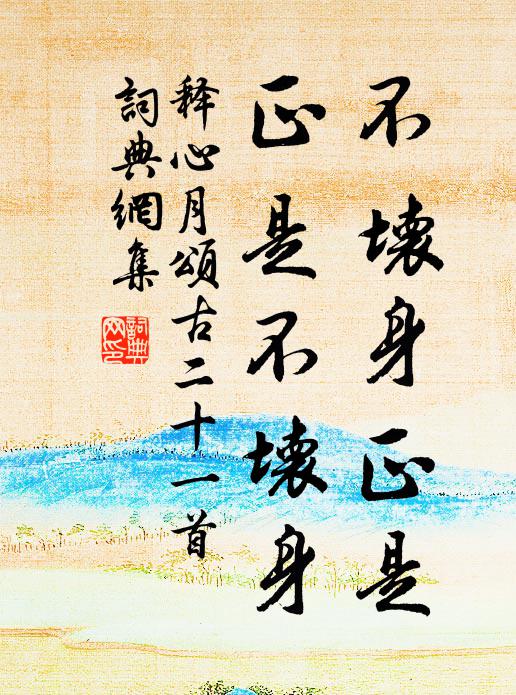 不壞身正是
正是不壞身
释心月頌古二十一首
詞典網集
詞典网印